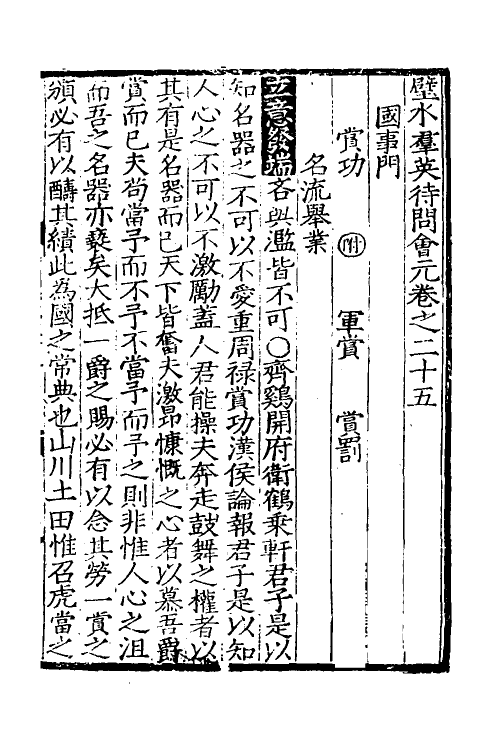 璧水羣英待問會元卷之二十五
國事門
賞功 附 軍賞 賞罰
名流舉業
立意發端吝與濫皆不可〇齊鷄開府衛鶴乗軒君子是以
知名器之不可以不愛重周禄賞功漢侯論報君子是以知
人心之不可以不激勵蓋人君能操夫奔走鼓舞之權者以
其有是名器而已天下皆奮夫激昂慷慨之心者以慕吾爵
賞而已夫茍當予而不予不當予而予之則非惟人心之沮
而吾之名器亦䙝矣大抵一爵之賜必有以念其勞一賞之
頒必有以醻其績此為國之常典也山川土田惟召虎當之